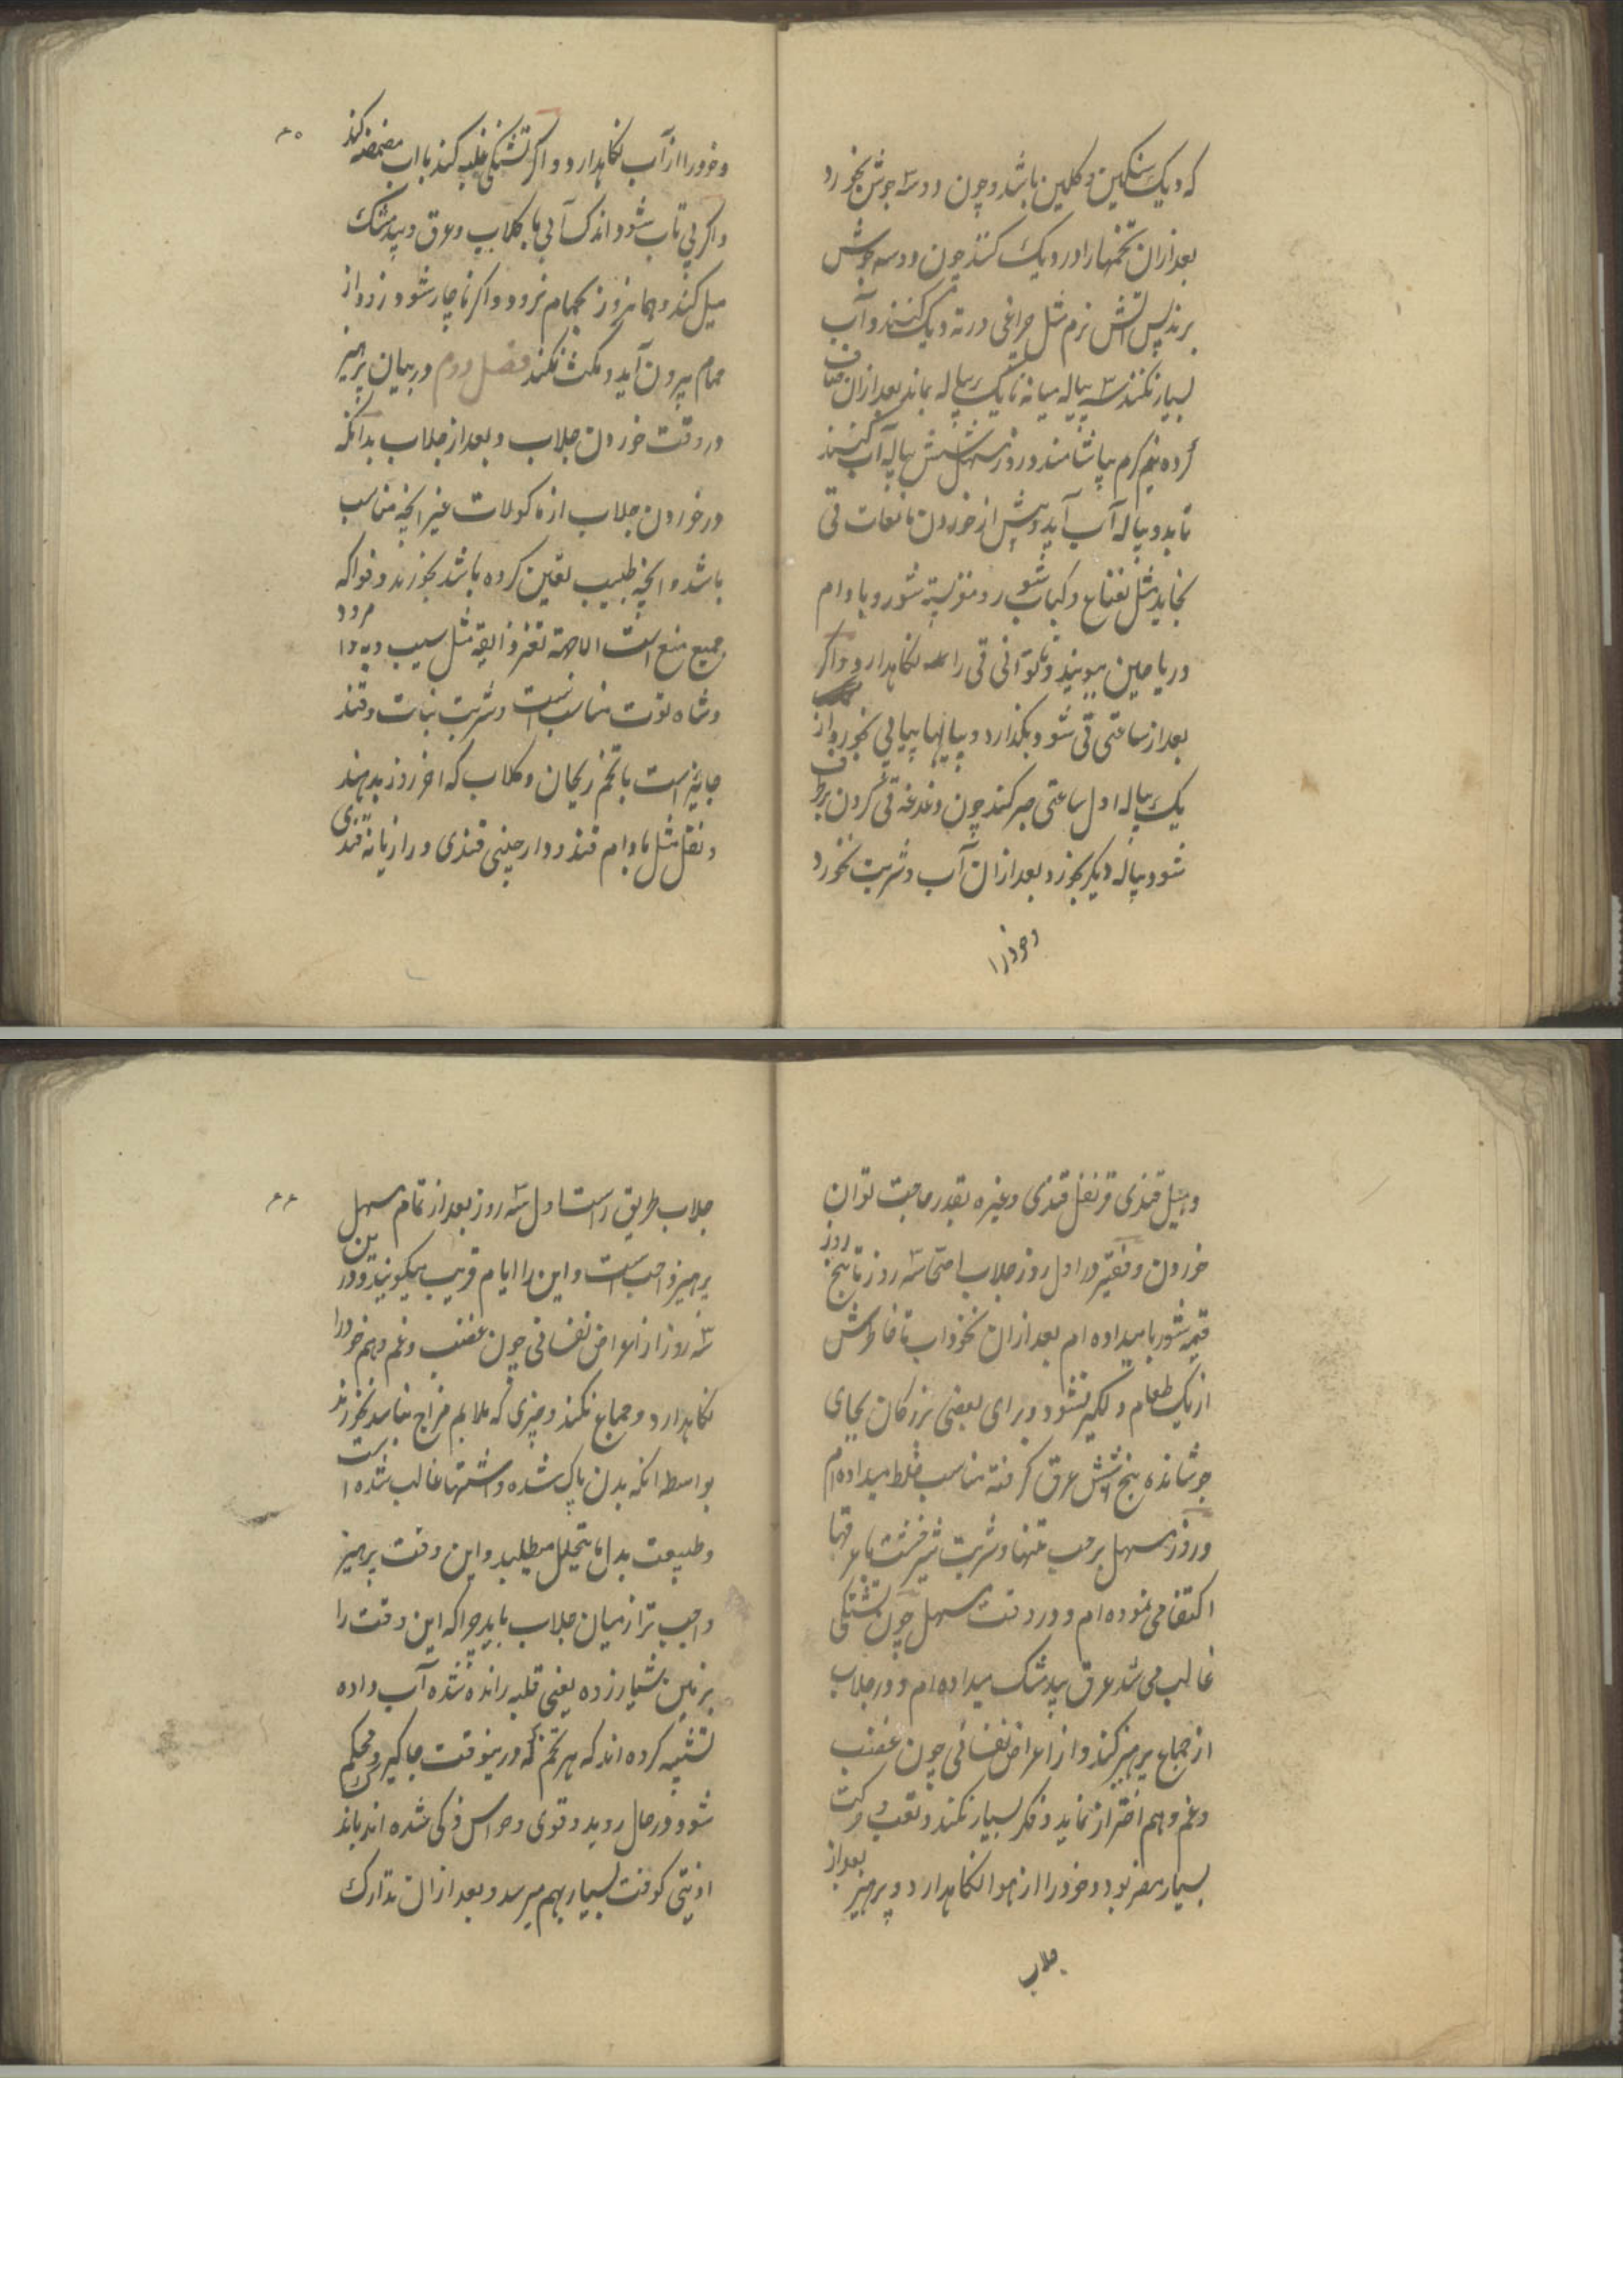 که دیک سنکین و کلین باشد و چون دو سه جوش بخورد
بعد ازان تخمها را در دیک کنند چون دو سه جوش
برند پس آتش نرم مثل چراغی در ته دیک کنند و آب
بسیار نکنند سه پیاله میانه تا یک پیاله بماند بعد ازان صاف
کرده نیم کرم بیاشامند و روز مسهل شش پیاله آب کنند
تا بدو پیاله آب آید و پیش از خوردن مانعات قی
بخاید مثل نعناع و کباب شور و مغز پسته شور و بادام
و ریاحین ببویند و تا توانی قی را نکاهدارد و اکر
بعد از ساعتی قی شود بکذارد و پیالها پیاپی نخورد از
یک پیاله اول ساعتی صبر کند چون دغدغه قی کردن برطرف
شود پیاله دیکر بخورد بعد ازان آب و شربت نخورد
و خود را
۶۵
و خود را از آب نکاهدارد و اکر تشنکی غلبه کند با آب مضمضه کند
و اکر بی تاب شود اندک آبی با کلاب و عرق و بیدمشک
میل کند و همانروز بحمام نرود و اکر ناچار شود زود از
حمام بیرون آید و مکث نکند فصل دوم در بیان پرهیز
در وقت خوردن جلاب و بعد از جلاب بدانکه
در خوردن جلاب از ماکولات غیر آنچه مناسب
باشد و آنچه طبیب تعین کرده باشد نخورند و فواکه
جمیع منع است الا جهة تغیر ذایقه مثل سیب و به و امرود
و شاه توت مناسب است و شربت نبات و قند
جایز است با تخم ریحان و کلاب که آخر روز بدهند
و نقل مثل بادام قند و دارچینی قندی و رازیانه قندی
و هیل قندی قرنفل قندی و غیره بقدر حاجت توان
خوردن و فقیر در اول روز جلاب حتی سه روز تا پنج روز
قیمه شوربا میداده ام بعد ازان نخوداب تا خاطرش
از یک طعام دلکیر نشود و برای بعضی بزرکان بجای
جوشانده پنج شش عرق کرفته مناسب خلط میداده ام
و روز مسهل بر حب تنها و شربت شیرخشت با عرقها
اکتفا می نموده ام و در وقت مسهل چون تشنکی
غالب می شد عرق بیدمشک میداده ام و در جلاب
از جماع پرهیز کند و از اعراض نفسانی چون غضب
و غم و هم احتراز نماید و فکر بسیار نکند و تعب و حرکت
بسیار مضر بود و خود را از هوا نکاهدارد و پرهیز بعد از
جلاب
۶۶
جلاب طریق است اول سه روز بعد از تمام مسهل
پرهیز واجب است و این را ایام قریب میکویند و در این
سه روز از اعراض نفسانی چون غضب و غم و هم خود را
نکاهدارد و جماع نکند و چیزی که ملایم مزاج نباشد نخورند
بواسطه انکه بدن پاک شده و اشتها غالب شده است
و طبیعت بدل ما یتحلل میطلبد و این وقت پرهیز
واجب تر از میان جلاب باید چرا که این وقت را
بزمین شیار زده یعنی قلبه رانده شده آب داده
تشبیه کرده اند که هر تخم که درینوقت جاکیر و محکم
شود در حال روید و قوی و حواس ذکی شده اند باندک
اذیتی کوفت بسیار بهم میرسد و بعد ازان تدارک